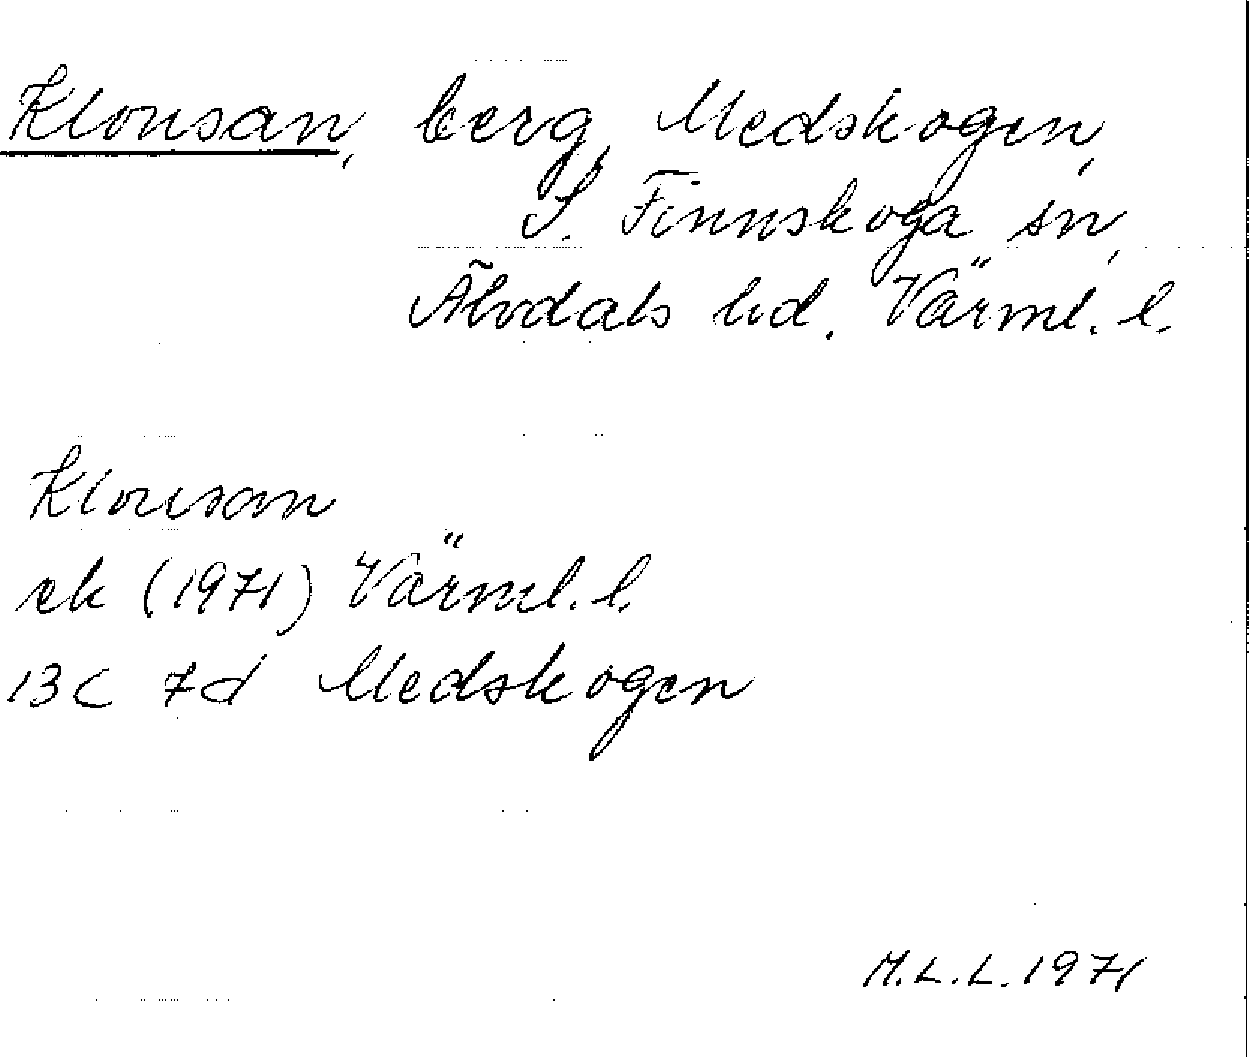 Klousan, berg, Medskogen,
S. Finnskoga sn,
Älvdals hd. Värml. l.
Klousan
ek (1971) Värml. l.
13C 7d Medskogen
M.L.L. 1971